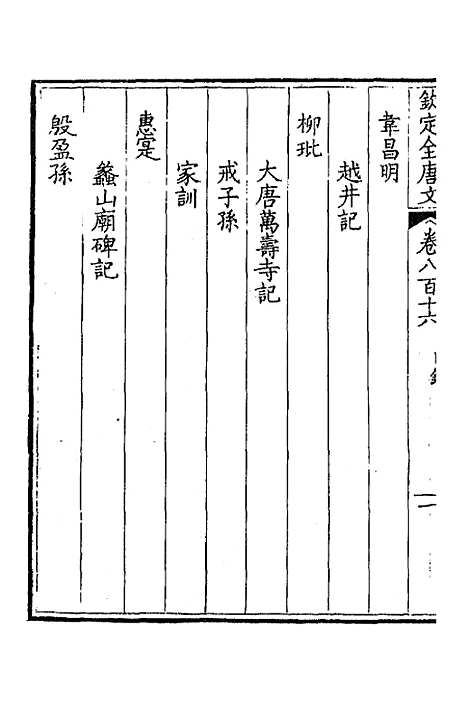 欽定全唐文
卷八百十六
二
韋昌明
越井記
柳玭
大唐萬壽寺記
戒子孫
家訓
惠寔
蠡山廟碑記
殷盈孫